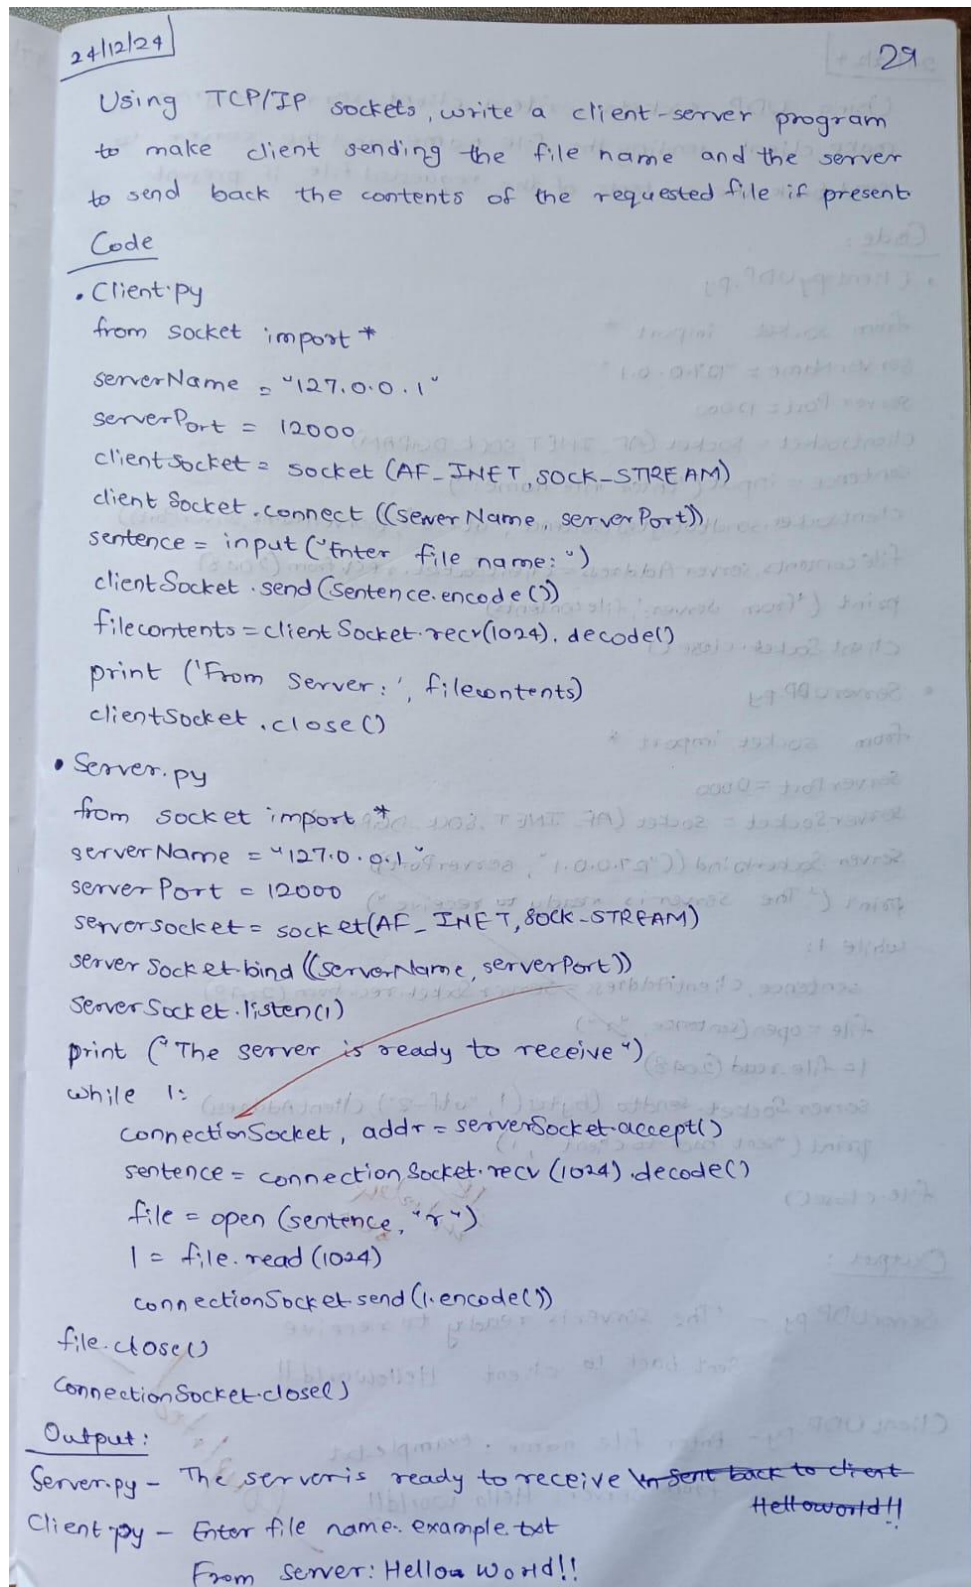 24/12/24
29
Using TCP/IP sockets, write a client-server program
to make client sending the file name and the server
to send back the contents of the requested file if present
Code
• Client.py
from socket import *
serverName = "127.0.0.1"
serverPort = 12000
clientSocket = socket (AF_INET, SOCK_STREAM)
client Socket.connect ((serverName, serverPort))
sentence = input ("Enter file name: ")
clientSocket.send(sentence.encode())
filecontents = clientSocket.recv(1024).decode()
print ('From server:', filecontents)
clientSocket.close()
• Server.py
from socket import *
serverName = "127.0.0.1"
serverPort = 12000
serversocket = socket(AF_INET, SOCK_STREAM)
server Socket.bind ((serverName, serverPort))
serverSocket.listen(1)
print ("The server is ready to receive")
while 1:
connectionSocket, addr = serverSocket.accept()
sentence = connectionSocket.recv (1024).decode()
file = open (sentence, "r")
l = file.read (1024)
connectionSocket.send (l.encode())
file.close()
connectionSocket.close()
Output:
Server.py - The server is ready to receive \n Sent back to client
Helloworld!!
Client.py - Enter file name: example.txt
From server: Hello World!!